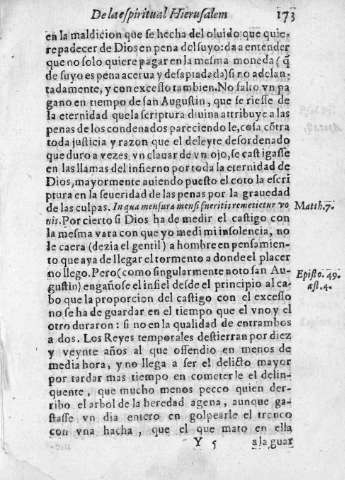 De la espiritual Hierusalem 173
en la maldicion que se hecha del oluido que quie
re padecer de Dios en pena del suyo: da a entender
que no solo quiere pagar en la mesma moneda (q̃
de suyo es pena acerua y desapiadada) si no adelan-
tadamente, y con excesso tambien. No falto vn pa
gano en tiempo de san Augustin, que se riesse de
la eternidad que la scriptura diuina attribuye a las
penas de los condenados pareciendole, cosa cõtra
toda justicia y razon que el deleyte desordenado
que duro a vezes vn clauar de vn ojo, se castigasse
en las llamas del infierno por toda la eternidad de
Dios, mayormente auiendo puesto el coto la escri
ptura en la seueridad de las penas por la grauedad
de las culpas. In qua mensura mensi fueritis remetietur vo
nis. Por cierto si Dios ha de medir el castigo con
Matth. 7.
la mesma vara con que yo medi mi insolencia, no
le caera (dezia el gentil) a hombre en pensamien-
to que aya de llegar el tormento a donde el placer
no llego. Pero (como singularmente noto san Au
Episto. 49.
gustin) engañose el infiel desde el principio al ca-
q̃st. 4.
bo que la proporcion del castigo con el excesso
no se ha de guardar en el tiempo que el vno y el
otro duraron: si no en la qualidad de entrambos
a dos. Los Reyes temporales destierran por diez
y veynte años al que offendio en menos de
media hora, y no llega a ser el delicto mayor
por tardar mas tiempo en cometerle el delin-
quente, que mucho menos pecco quien der-
ribo el arbol de la heredad agena, aunque ga-
stasse vn dia entero en golpearle el tronco
con vna hacha, que el que mato en ella
Y 5 a la guar